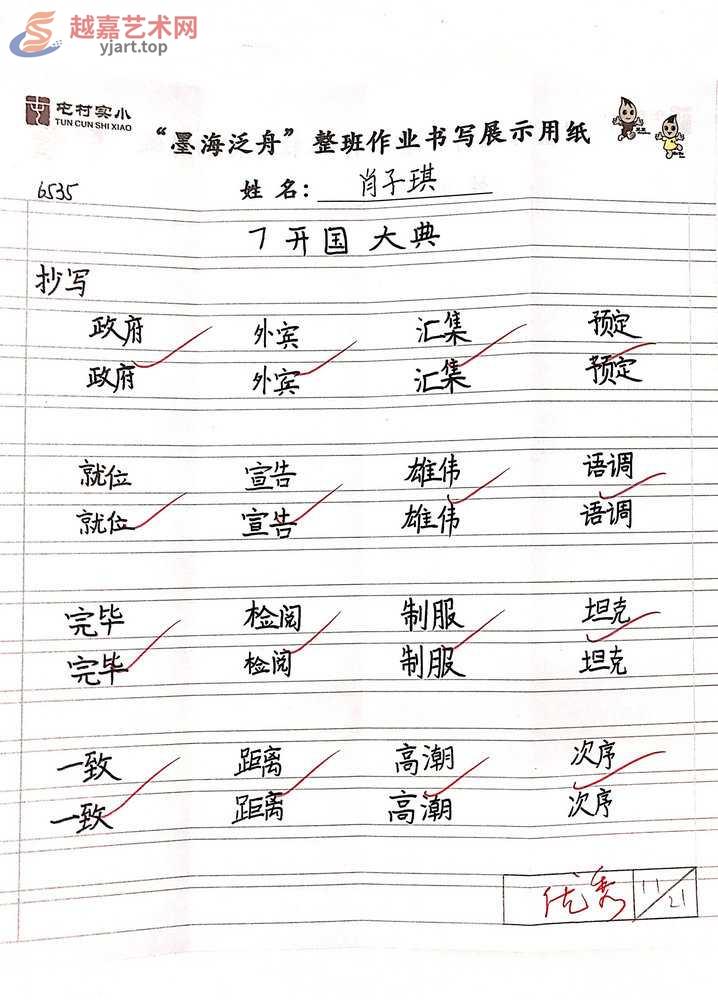 越嘉艺术网
yjart.top
屯村实小
TUN CUN SHI XIAO
“墨海泛舟”整班作业书写展示用纸
6535 姓名：肖子琪
7 开国大典
抄写
政府 外宾 汇集 预定
政府 外宾 汇集 预定
就位 宣告 雄伟 语调
就位 宣告 雄伟 语调
完毕 检阅 制服 坦克
完毕 检阅 制服 坦克
一致 距离 高潮 次序
一致 距离 高潮 次序
优秀 11/21